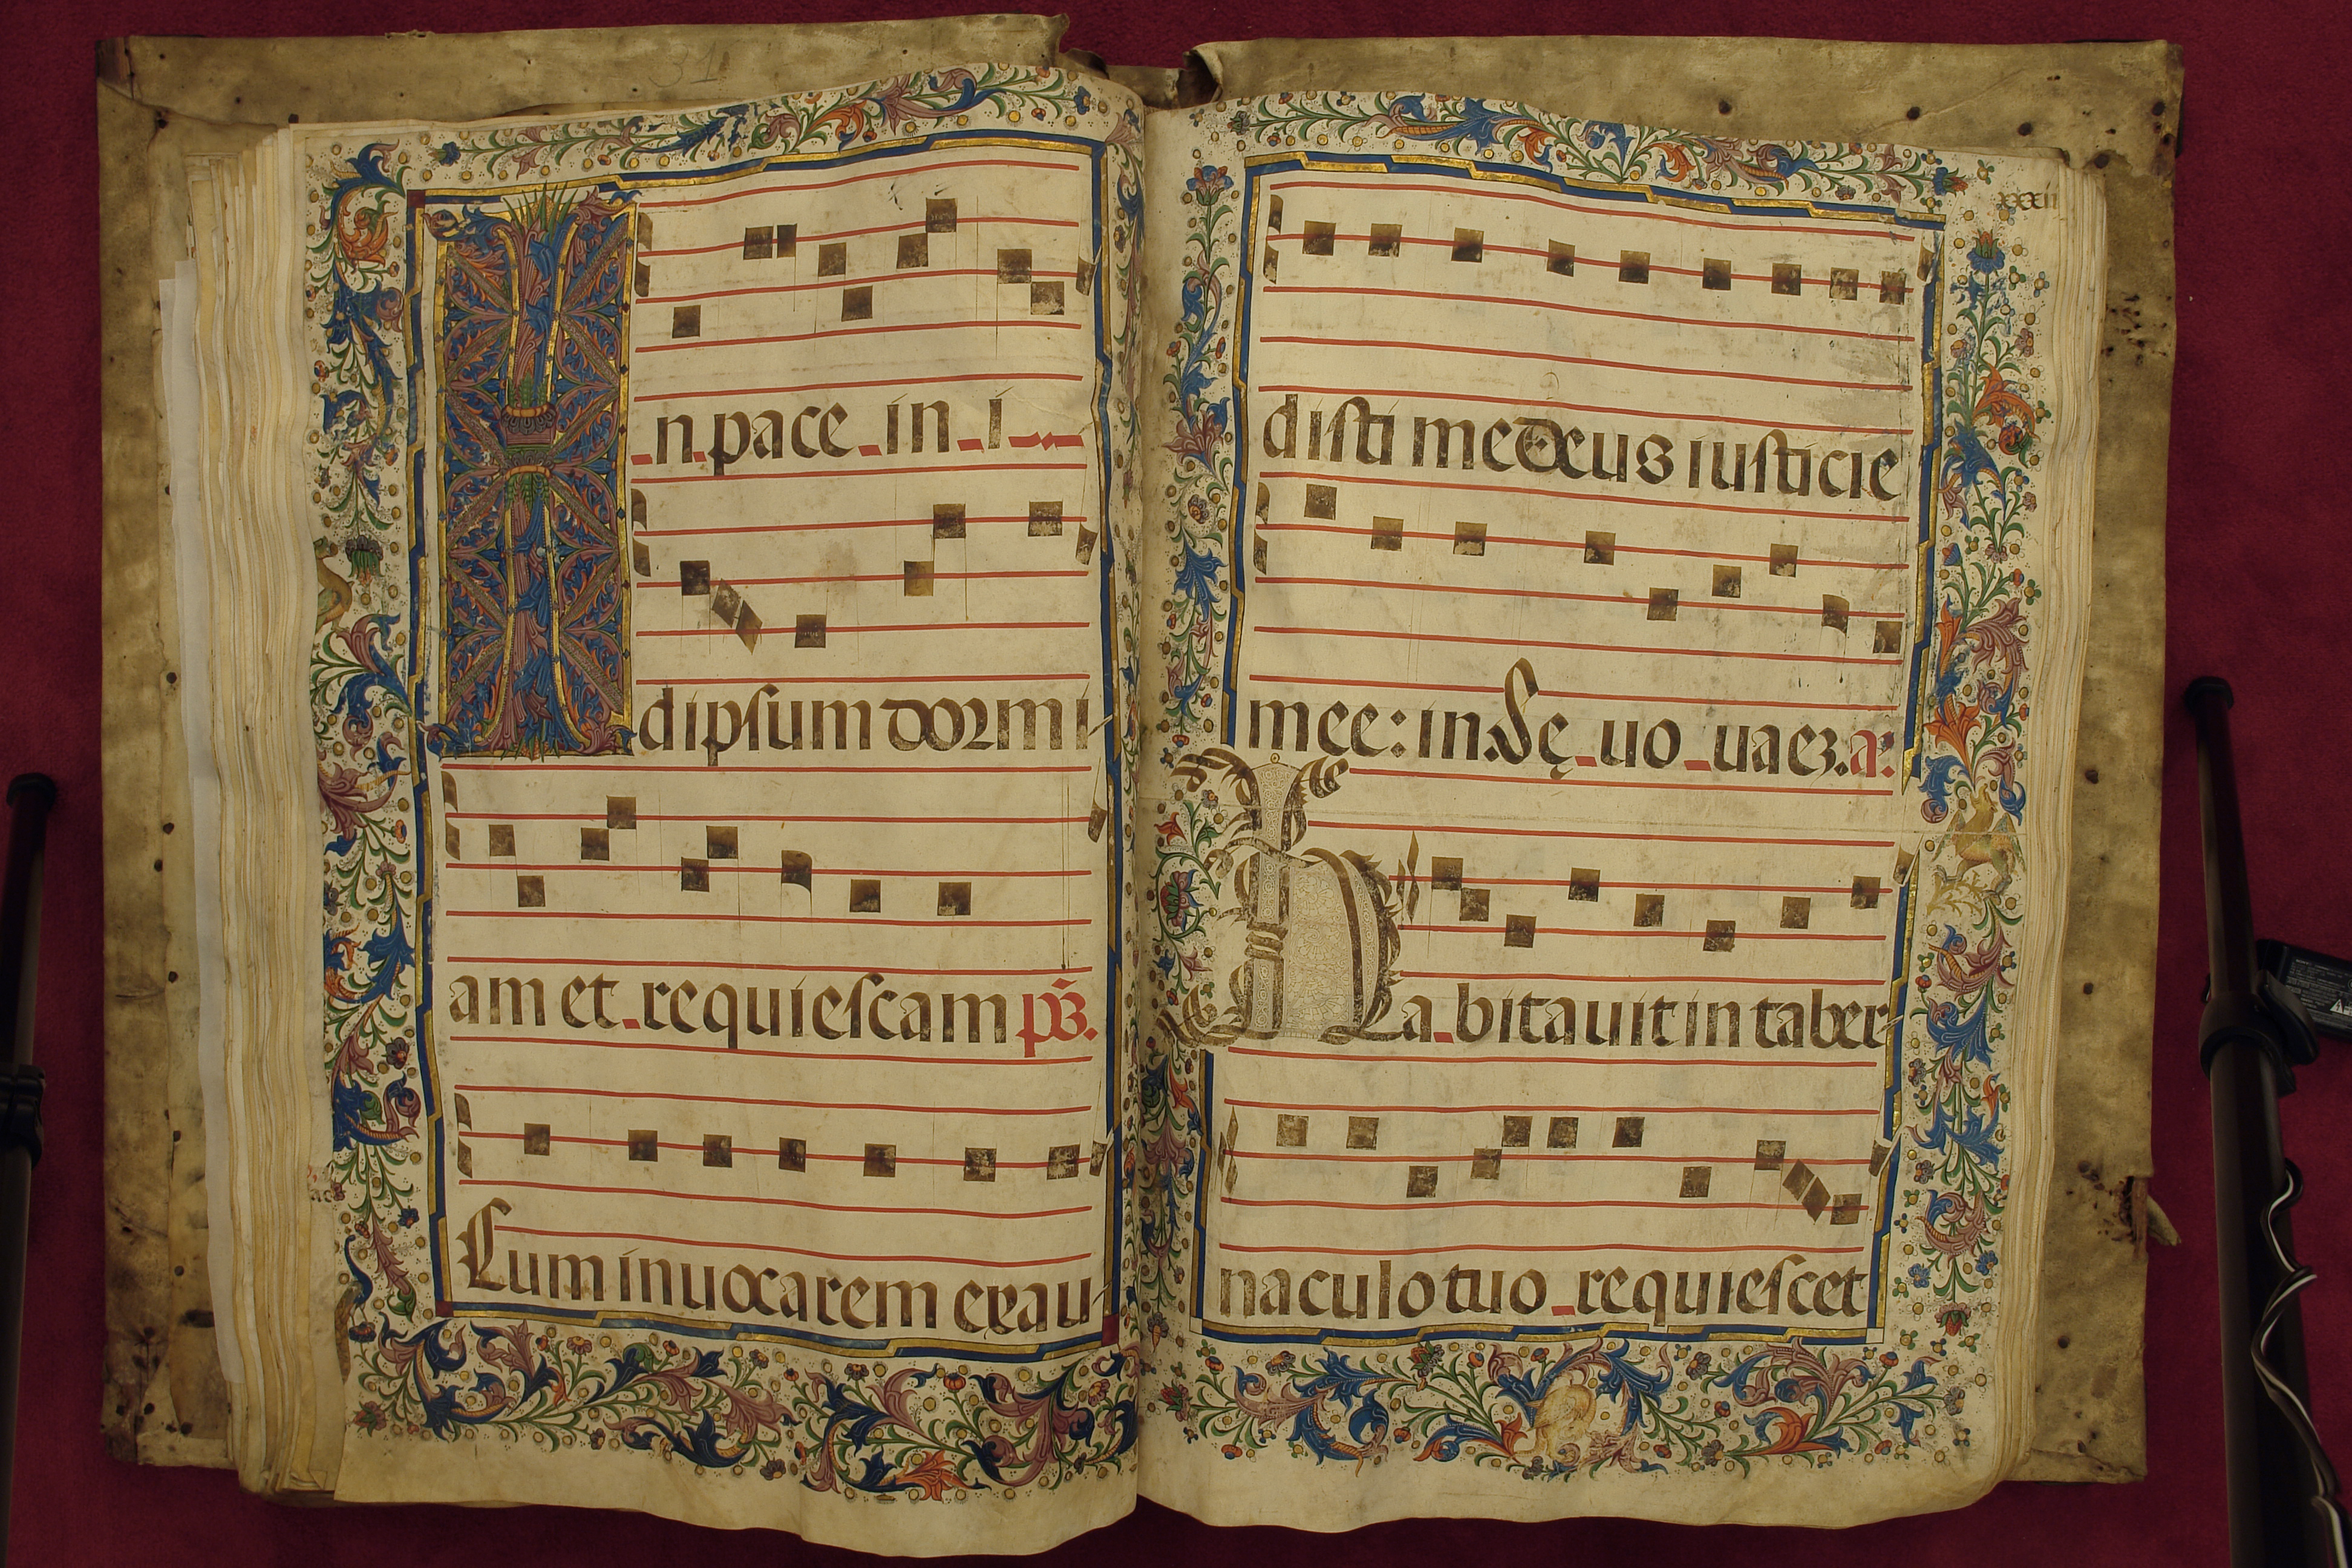 31
In pace in i
dipsum dormi
am et requiescam ps.
Cum inuocarem exau
xxxii
disti me deus iusticie
mee: in. S. ę uo uaez. a.
Habitauit in taber
naculo tuo requiescet